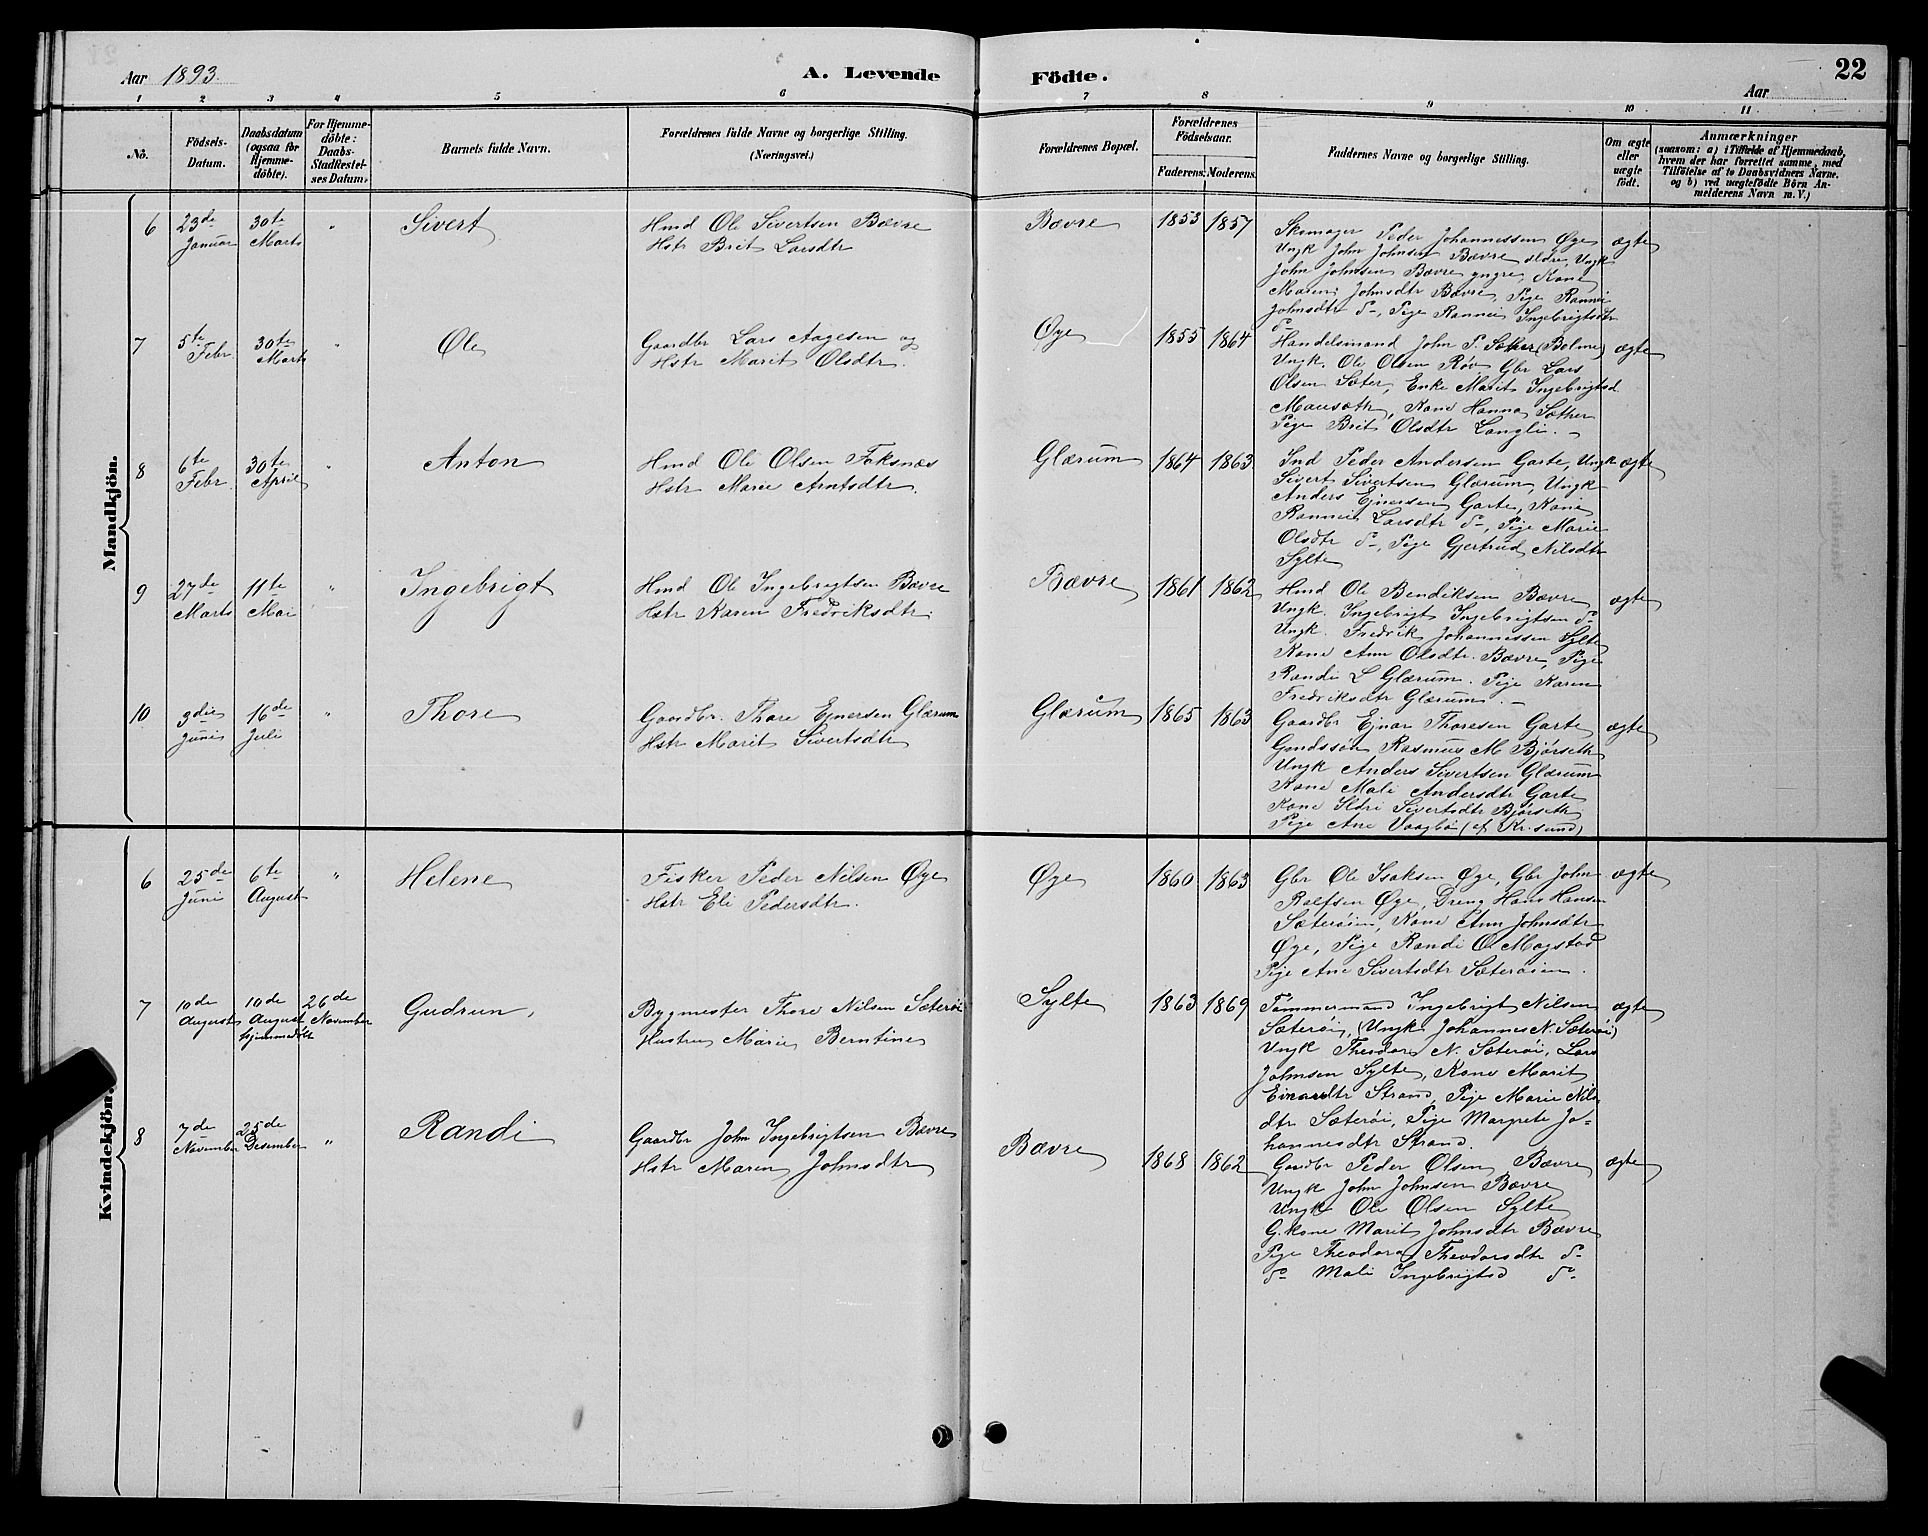 Aar 1893. A. Levende Födte. Aar 22
1 2 3 4 5 6 7 8 9 10 11
No. Födsels-Datum. Daabsdatum (ogsaa for Hjemmedöbte). For Hjemmedöbte: Daabs-Stadfestelses Datum. Barnets fulde Navn. Forældrenes fulde Navne og borgerlige Stilling. (Næringsvei.) Forældrenes Bopæl. Forældrenes Födselsaar. Faderens. Moderens. Faddernes Navne og borgerlige Stilling. Om ægte eller uægte födt. Anmærkninger (saasom: a) i Tilfælde af Hjemmedaab, hvem der har forrettet samme, med Tilföielse af to Daabsvidners Navne. og b) ved uægtefödte Börn Anmelderens Navn m. V.)
Mandkjön.
6 23de Januar 30te Marts " Sivert Hmd Ole Sivertsen Bævre
Hstr Brit Larsdtr
Bævre 1853 1857 Skomager Peder Johannessen Øye ægte
Ungk John Johnsen Bævre eldre, Ungk
John Johnsen Bævre yngre, Kone
Maren Johnsdtr Bævre, Pige Rannei
Johnsdtr do, Pige Rannei Ingebrigtsdtr
do
7 5te Febr 30te Marts " Ole Gaardbr Lars Aagesen og
Hstr Marit Olsdtr.
Øye 1855 1864 Handelsmand John P. Sæther (Bolme) ægte
Ungk. Ole Olsen Røv Gbr Lars
Olsen Sæter, Enke Marit Ingebrigtsd
Mausæth, Kone Hanna Sæther
Pige Brit Olsdtr Langli. -
8 6te Febr. 30te April " Anton Hmd Ole Olsen Foksnæs
Hstr Marie Arntsdtr.
Glærum 1864 1863 Ind Peder Andersen Garte, Ungk ægte
Sivert Sivertsen Glærum, Ungk
Anders Ejnersen Garte, Kone
Rannei Larsdtr do, Pige Marie
Olsdtr do, Pige Gjertrud Nilsdtr
Sylte
9 27de Marts 11te Mai " Ingebrigt Hmd Ole Ingebrigtsen Bævre
Hstr Karen Fredriksdtr.
Bævre 1861 1862 Hmd Ole Bendiksen Bævre ægte
Ungk. Ingebrigt Ingebrigtsen do
Ungk. Fredrik Johannessen Sylte
Kone Ann Olsdtr. Bævre, Pige
Randi L Glærum. Pige Karen
Fredriksdtr Glærum. -
10 3die Juni 16de Juli " Thore Gaardbr. Thore Ejnersen Glærum
Hstr Marit Sivertsdtr
Glærum 1865 1863 Gaardbr Ejnar Thoresen Garte ægte
Gmdssøn Rasmus M Bjørseth
Ungk Anders Sivertsen Glærum
Kone Mali Andersdtr Garte
Kone Ildri Sivertsdtr Bjørseth
Pige Ane Vaagbø (af Kr.sund)
Kvindekjön.
6 25de Juni 6te August " Helene Fisker Peder Nilsen Øye
Hstr Eli Pedersdtr.
Øye 1860 1863 Gbr Ole Isaksen Øye, Gbr John ægte
Rolfsen Øye, Dreng Hans Hansen
Sæterøien, Kone Ann Johnsdtr
Øye, Pige Randi O Mogstad
Pige Ane Sivertsdtr Sæterøien.
7 10de August 10de August hjemmedøbt 26de November Gudrun, Bygmester Thore Nilsen Sæterøi
Hustru Marie Berntine
Sylte 1863 1869 Tømmermand Ingebrigt Nilsen ægte
Sæterøi, (Ungk Johannes N. Sæterøi)
Ungk Theodor N. Sæterøi, Lars
Johnsen Sylte, Kone Marit
Einarsdtr Strand, Pige Marie Nils
dtr Sæterøi, Pige Margrete Jo-
hannesdtr Strand.
8 7de November 25de Desember " Randi Gaardbr John Ingebrigtsen Bævre
Hstr Maren Johnsdtr
Bævre 1868 1862 Gaardbr Peder Olsen Bævre ægte
Ungk John Johnsen Bævre
Ungk Ole Olsen Sylte
G.kone Marit Johnsdtr Bævre
Pige Theodora Theodorsdtr do
do Mali Ingebrigtsd do